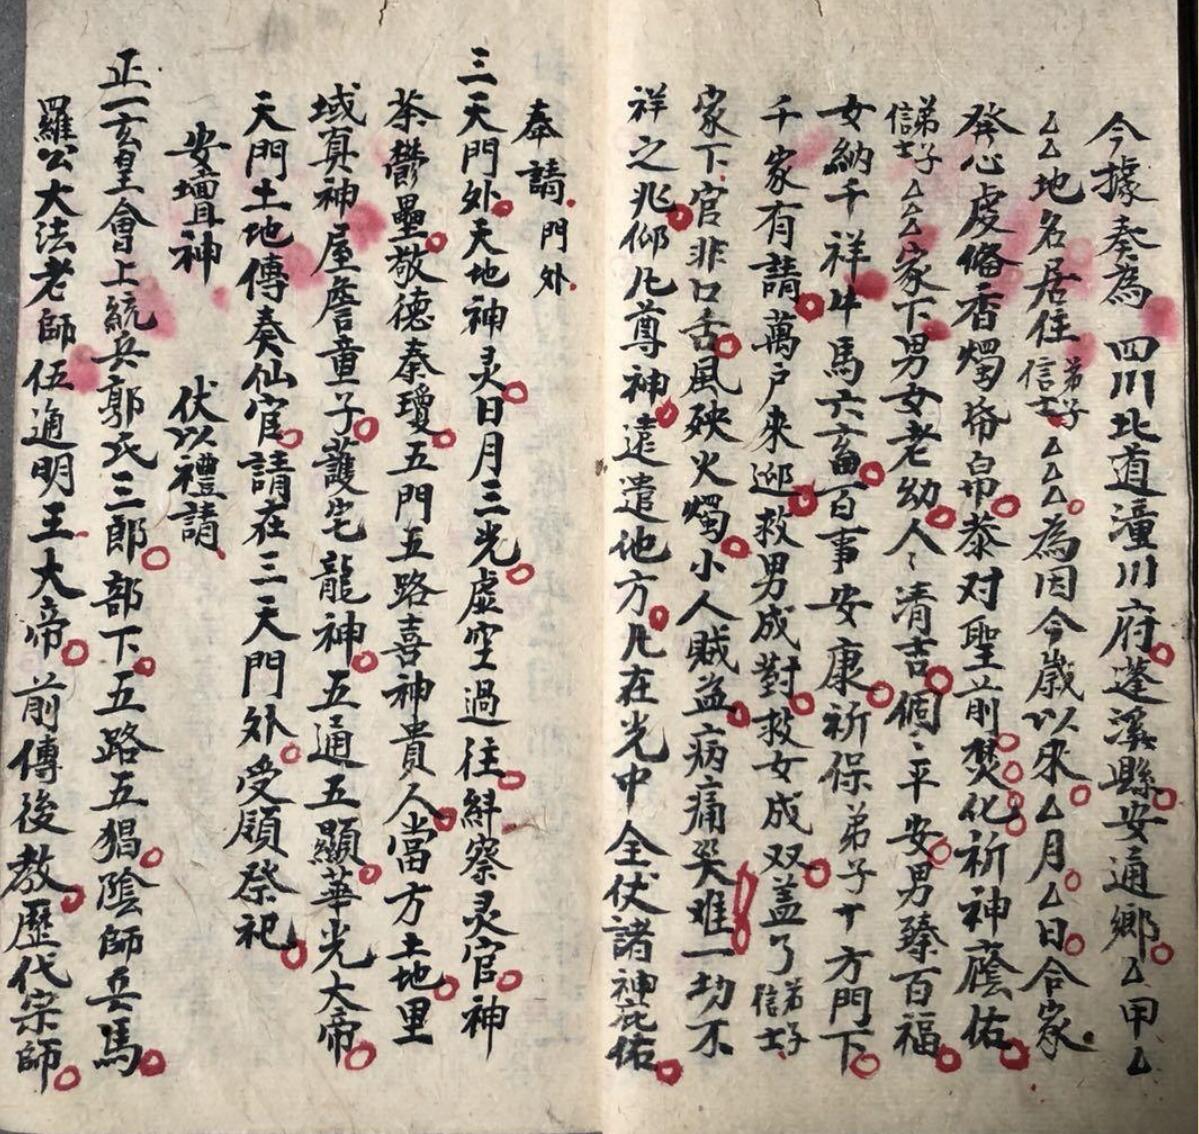 今據奏為 四川北道潼川府蓬溪縣安通鄉厶甲厶
厶厶地名居住信士弟子厶厶厶為因今歲以來厶月厶日合家
發心虔俻香燭帛恭对聖前焚化祈神蔭佑
信士弟子厶厶厶家下男女老幼人〻清吉個〻平安男臻百福
女納千祥牛馬六畜百事安康祈保弟子十方門下
千家有請萬户來迎救男成對救女成双盖了信士弟子
家下官非口舌風殃火燭小人賊盗病痛災难一切不
祥之兆仰凡尊神遠遣他方凡在光中全伏諸神庇佑
奉請門外
三天門外天地神灵日月三光虛空過往糾察灵官神
茶鬱壘敬德秦瓊五門五路喜神貴人當方土地里
域真神屋詹童子護宅龍神五通五顯華光大帝
天門土地傳奏仙官請在三天門外受領祭祀
安壇神 伏以禮請
正一玄皇會上統兵郭氏三郎部下五路五猖陰師兵馬
羅公大法老師伍通明王大帝前傳後教歷代宗師